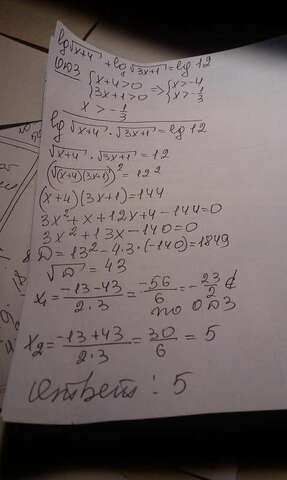 lg√x+4 + lg√3x+1 = lg 12
ОДЗ {x+4>0 => {x>-4
{3x+1>0 {x>-1/3
x > -1/3
lg √x+4 · √3x+1 = lg 12
√x+4 · √3x+1 = 12
(√(x+4)(3x+1))² = 12²
(x+4)(3x+1)=144
3x²+x+12x+4-144=0
3x²+13x-140=0
D=13²-4·3·(-140)=1849
√D = 43
x₁ = (-13-43)/(2·3) = -56/6 = -23/2 ∉
по ОДЗ
x₂ = (-13+43)/(2·3) = 30/6 = 5
Ответ: 5